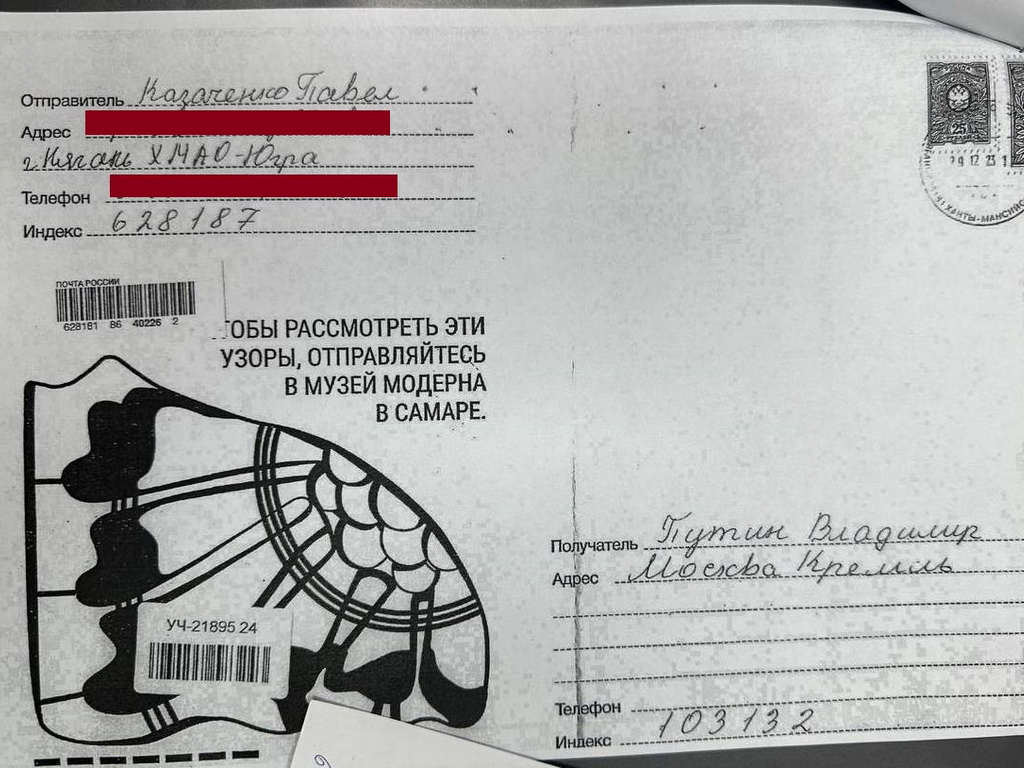 Отправитель Казаченко Павел
Адрес
г. Нягань ХМАО-Югра
Телефон
Индекс 628187
ПОЧТА РОССИИ
628181 86 40226 2
ТОБЫ РАССМОТРЕТЬ ЭТИ
УЗОРЫ, ОТПРАВЛЯЙТЕСЬ
В МУЗЕЙ МОДЕРНА
В САМАРЕ.
УЧ-21895 24
25
29 12 23 1
ХАНТЫ-МАНСИЙС
Получатель Путин Владимир
Адрес Москва Кремль
Телефон
Индекс 103132